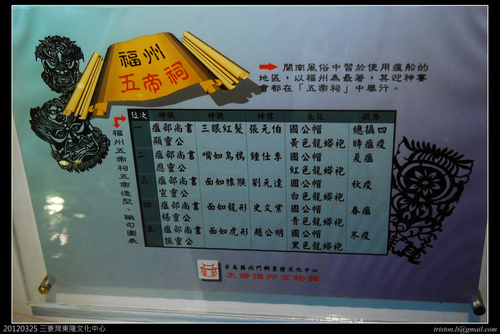 福州
五帝祠
閩南風俗中習於使用瘟船的
地區，以福州為最著，其迎神賽
會都在「五帝祠」中舉行。
福州五帝祠五帝造型、職司圖表
位次 神職 神貌 神諱 衣冠 職務
一 瘟部尚書 三眼紅髮 張元伯 國公帽 總攝四
顯靈公 黃色龍蟒袍 時瘟疫
二 瘟部尚書 嘴如鳥鴉 鍾仕季 國公帽 夏瘟
應靈公 紅色龍蟒袍
三 瘟部尚書 面如猿猴 劉元達 國公帽 秋疫
宣靈公 白色龍蟒袍
四 瘟部尚書 面如龍形 史文業 國公帽 春瘟
揚靈公 青色龍蟒袍
五 瘟部尚書 面如虎形 趙公明 國公帽 冬疫
振靈公 黑色龍蟒袍
台南縣北門鄉東隆文化中心
王爺信仰文物館
20120325 三寮灣東隆文化中心
triston.li@gmail.com